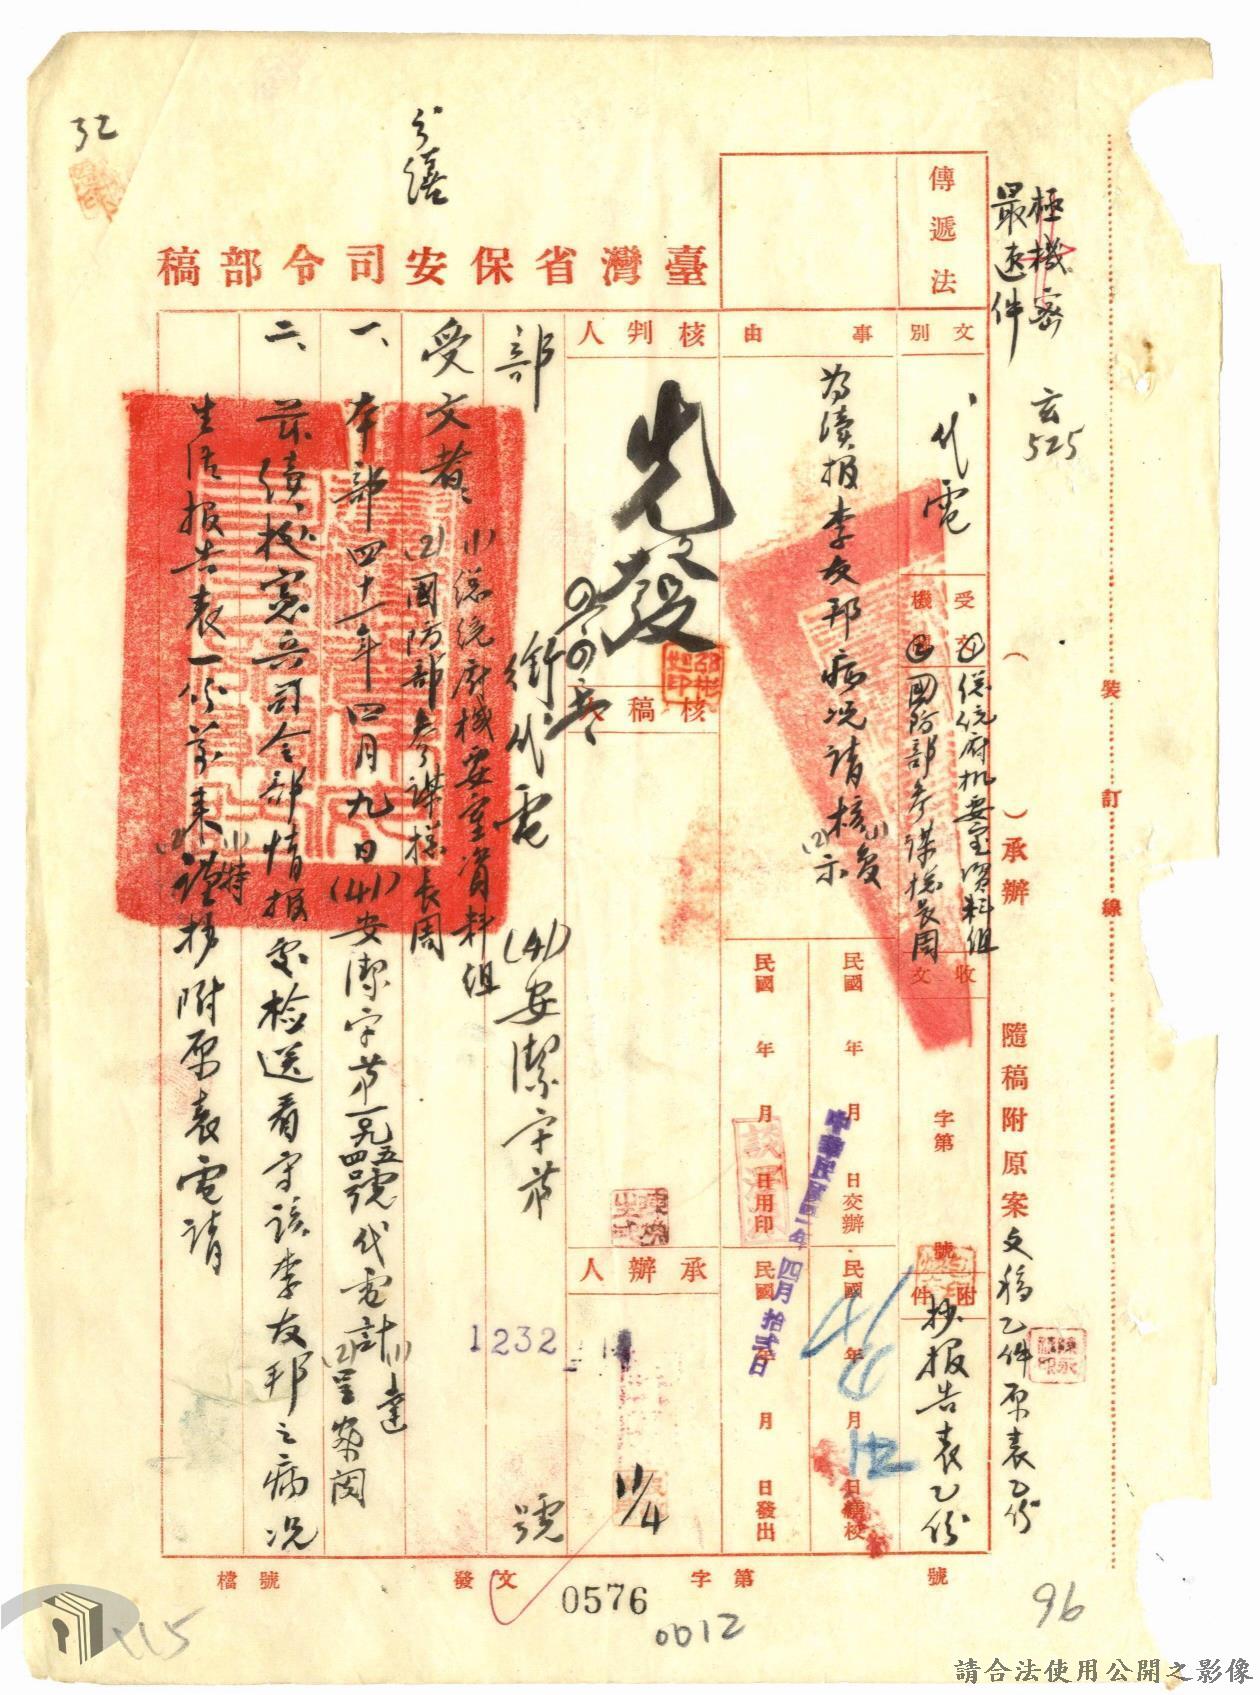 極機密
最速件
玄525
裝訂線
（　）承辦　隨稿附原案文稿乙件原表乙份
傳遞法
臺灣省保安司令部稿
32
文別
代電
受文機
(1)總統府机要室資料組
(2)國防部參謀總長周
收文　字第　號
附件
抄報告表乙份
事由
為續報李友邦病況請核(1)復(2)示
民國　年　月　日交辦
民國　年　月　日繕校
民國　年　月　日用印
民國　年　月　日發出
中華民國四一年四月拾弍日
核判人
先發
核稿人
承辦人
11/4
部
銜代電　(41)安潔字第　號
1232
受文者：(1)總統府機要室資料組
(2)國防部參謀總長周
一、本部四十一年四月九日(41)安潔字第一九五四號代電計(1)達(2)呈鈞閱
二、茲續據憲兵司令部情報處檢送看守該李友邦之病況
生活報告表一份前來(1)特(2)謹抄附原表電請
檔號
發文　字第　號
0576
0012
96
115
請合法使用公開之影像